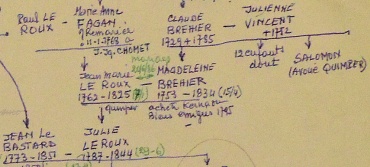 Paul LE ROUX
Marie Anne
FAGAN
Remariée
11.1.1768 à
J. Jq. CHOMET
CLAUDE
BREHIER
1729 + 1785
JULIENNE
VINCENT
+ 1772
12 enfants
dont
SALOMON
(AVOUÉ QUIMPER)
Jean Marie
LE ROUX
1762-1825
MAGDELEINE
BREHIER
1753 - 1834 (15/4)
Quimper
achète
Biens 1795
JEAN Le
BASTARD
1773-1851
JULIE
LE ROUX
1787-1844 (23-6)